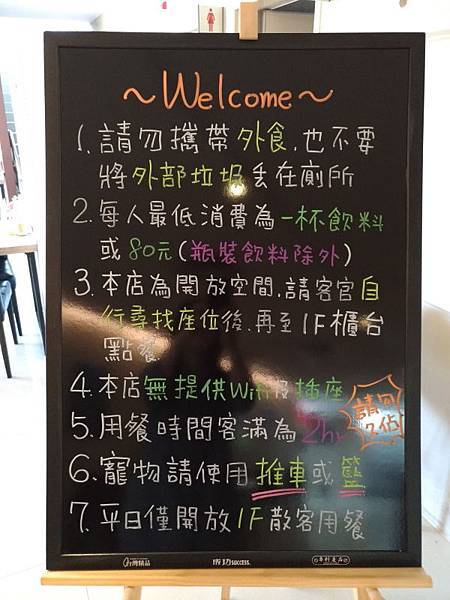 ~Welcome~
1. 請勿攜帶外食,也不要
將外部垃圾丟在廁所
2. 每人最低消費為一杯飲料
或80元(瓶裝飲料除外)
3. 本店為開放空間,請客官自
行尋找座位後,再至1F櫃台
點餐
4. 本店無提供Wifi及插座
5. 用餐時間客滿為2hr
請勿
久佔
6. 寵物請使用推車或籃
7. 平日僅開放1F散客用餐
台灣精品
成功success.